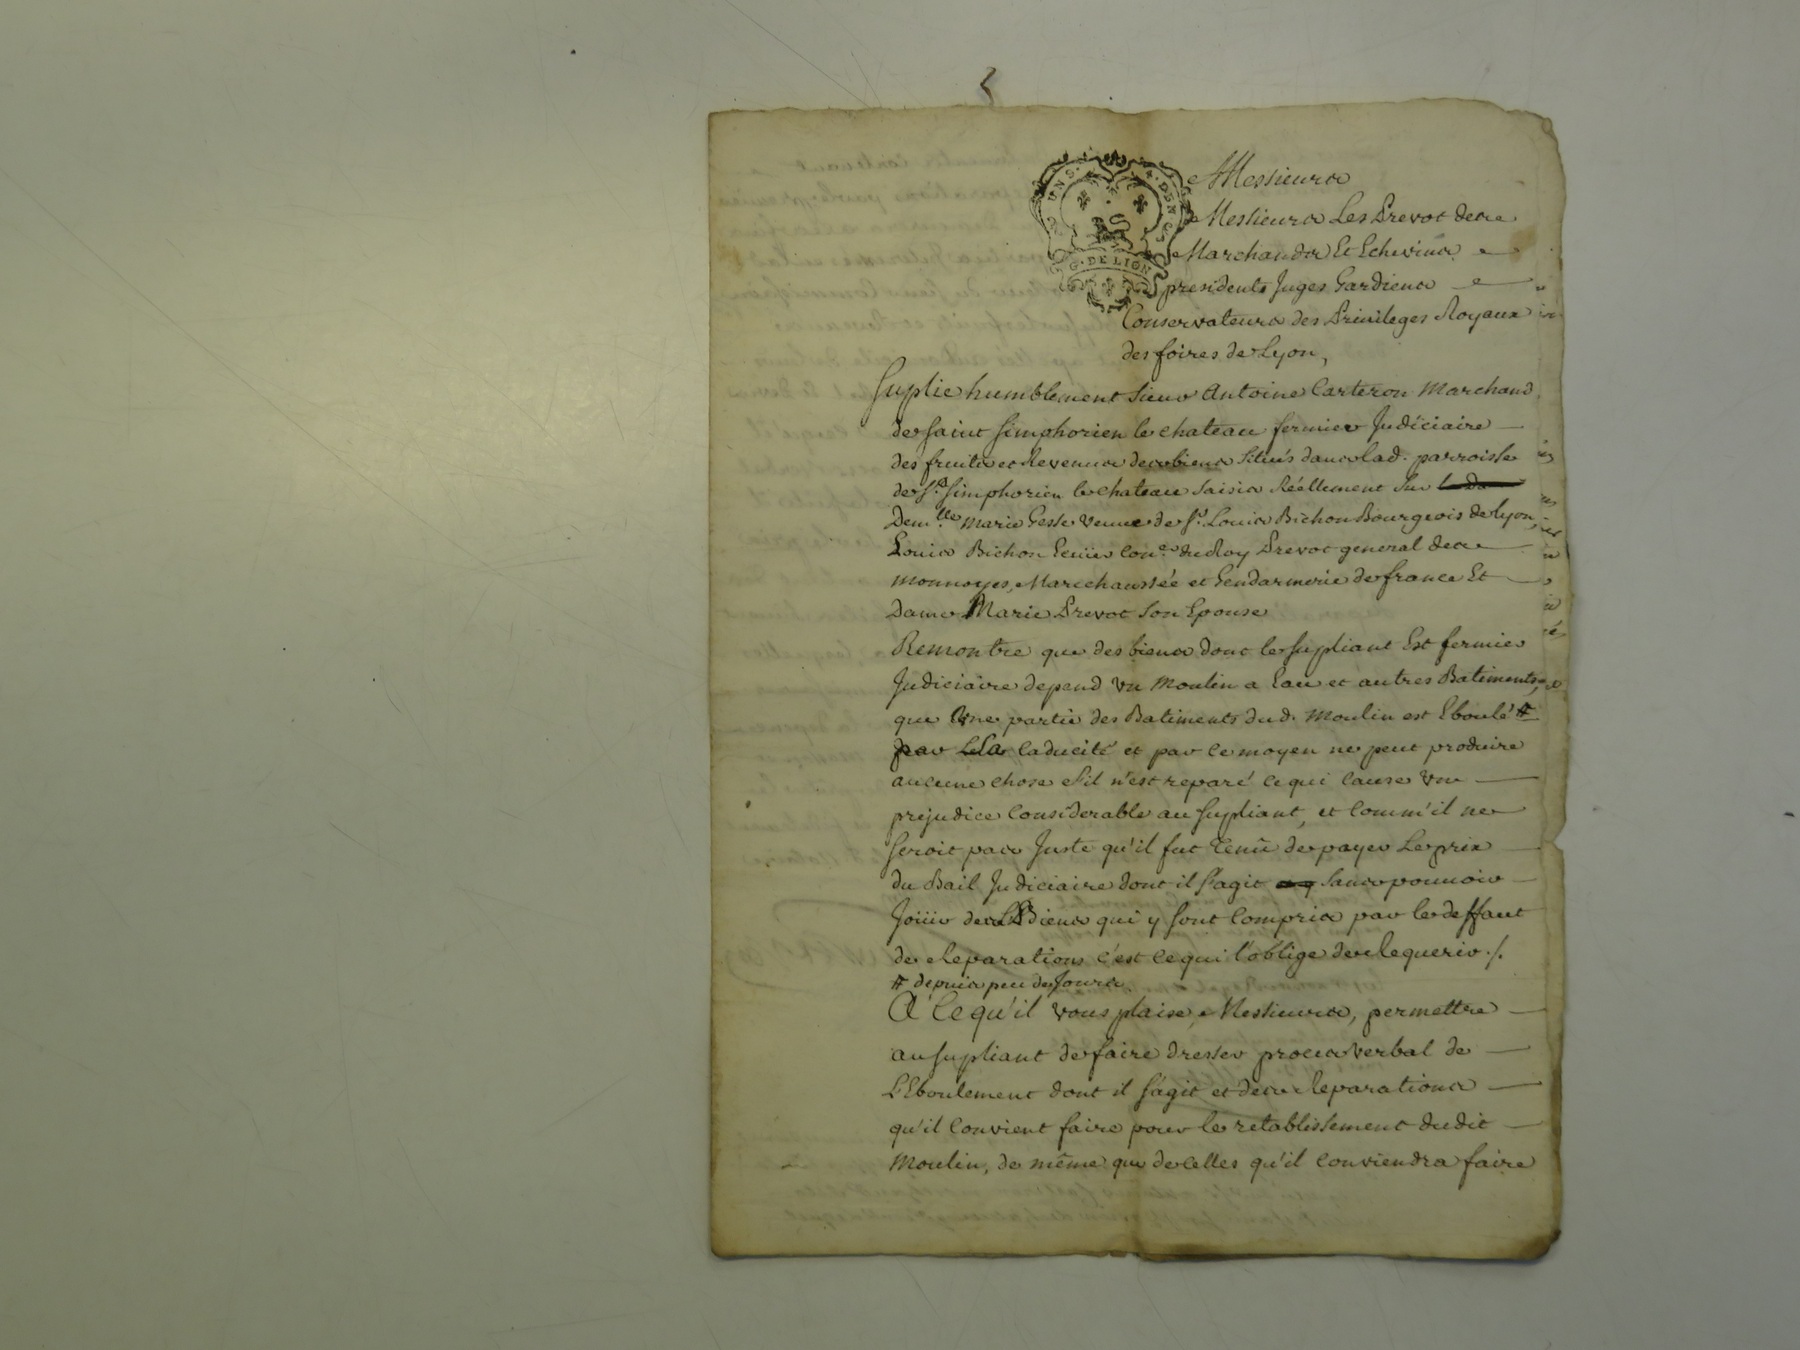 G. DE LION
Messieurs
Messieurs Les Prevot des
Marchands Et Echevins
presidents Juges Gardiens
Conservateurs des Privileges Royaux
des foires de Lyon,
Suplie humblement Sieur Antoine Carteron Marchand
de Saint Simphorien le chateau fermier Judiciaire
des fruits et Revenus des biens Situés dans lad. parroisse
de St. Simphorien le chateau Saisis Réellement Sur
Demlle Marie Gesse veuve de Sr. Louis Bichon Bourgeois de Lyon,
Louis Bichon Ecuier Coner du Roy Prevot general des
monnoyes, Marechaussée et Gendarmerie de france Et
dame Marie Prevot son Epouse
Remontre que des biens dont le Supliant Est fermier
Judiciaire depend un Moulin a Eau et autres Batiments,
que Une partie des Batiments dud. Moulin est Eboulé #
par caducité et par ce moyen ne peut produire
aucune chose S'il n'est reparé ce qui cause un
prejudice Considerable au Supliant, et Comm'il ne
Seroit pas Juste qu'il fut Tenû de payer Le prix
du Bail Judiciaire dont il S'agit Sans pouvoir
Joüir des Biens qui y Sont Compris par le deffaut
de Reparations c'est ce qui l'oblige de Requerir ./.
# depuis peu de Jours.
A Ce qu'il vous plaise, Messieurs, permettre
au Supliant de faire dresser proces verbal de
L'Eboulement dont il S'agit et des Reparations
qu'il Convient faire pour le retablissement dudit
Moulin, de même que de Celles qu'il Conviendra faire